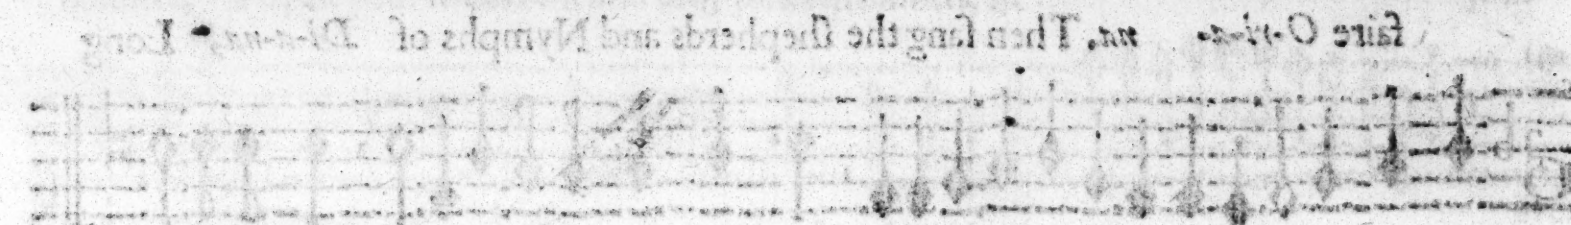 faire O-ri-a- na, Then ſang the ſhepherds and Nymphs of Di-a-na, Long